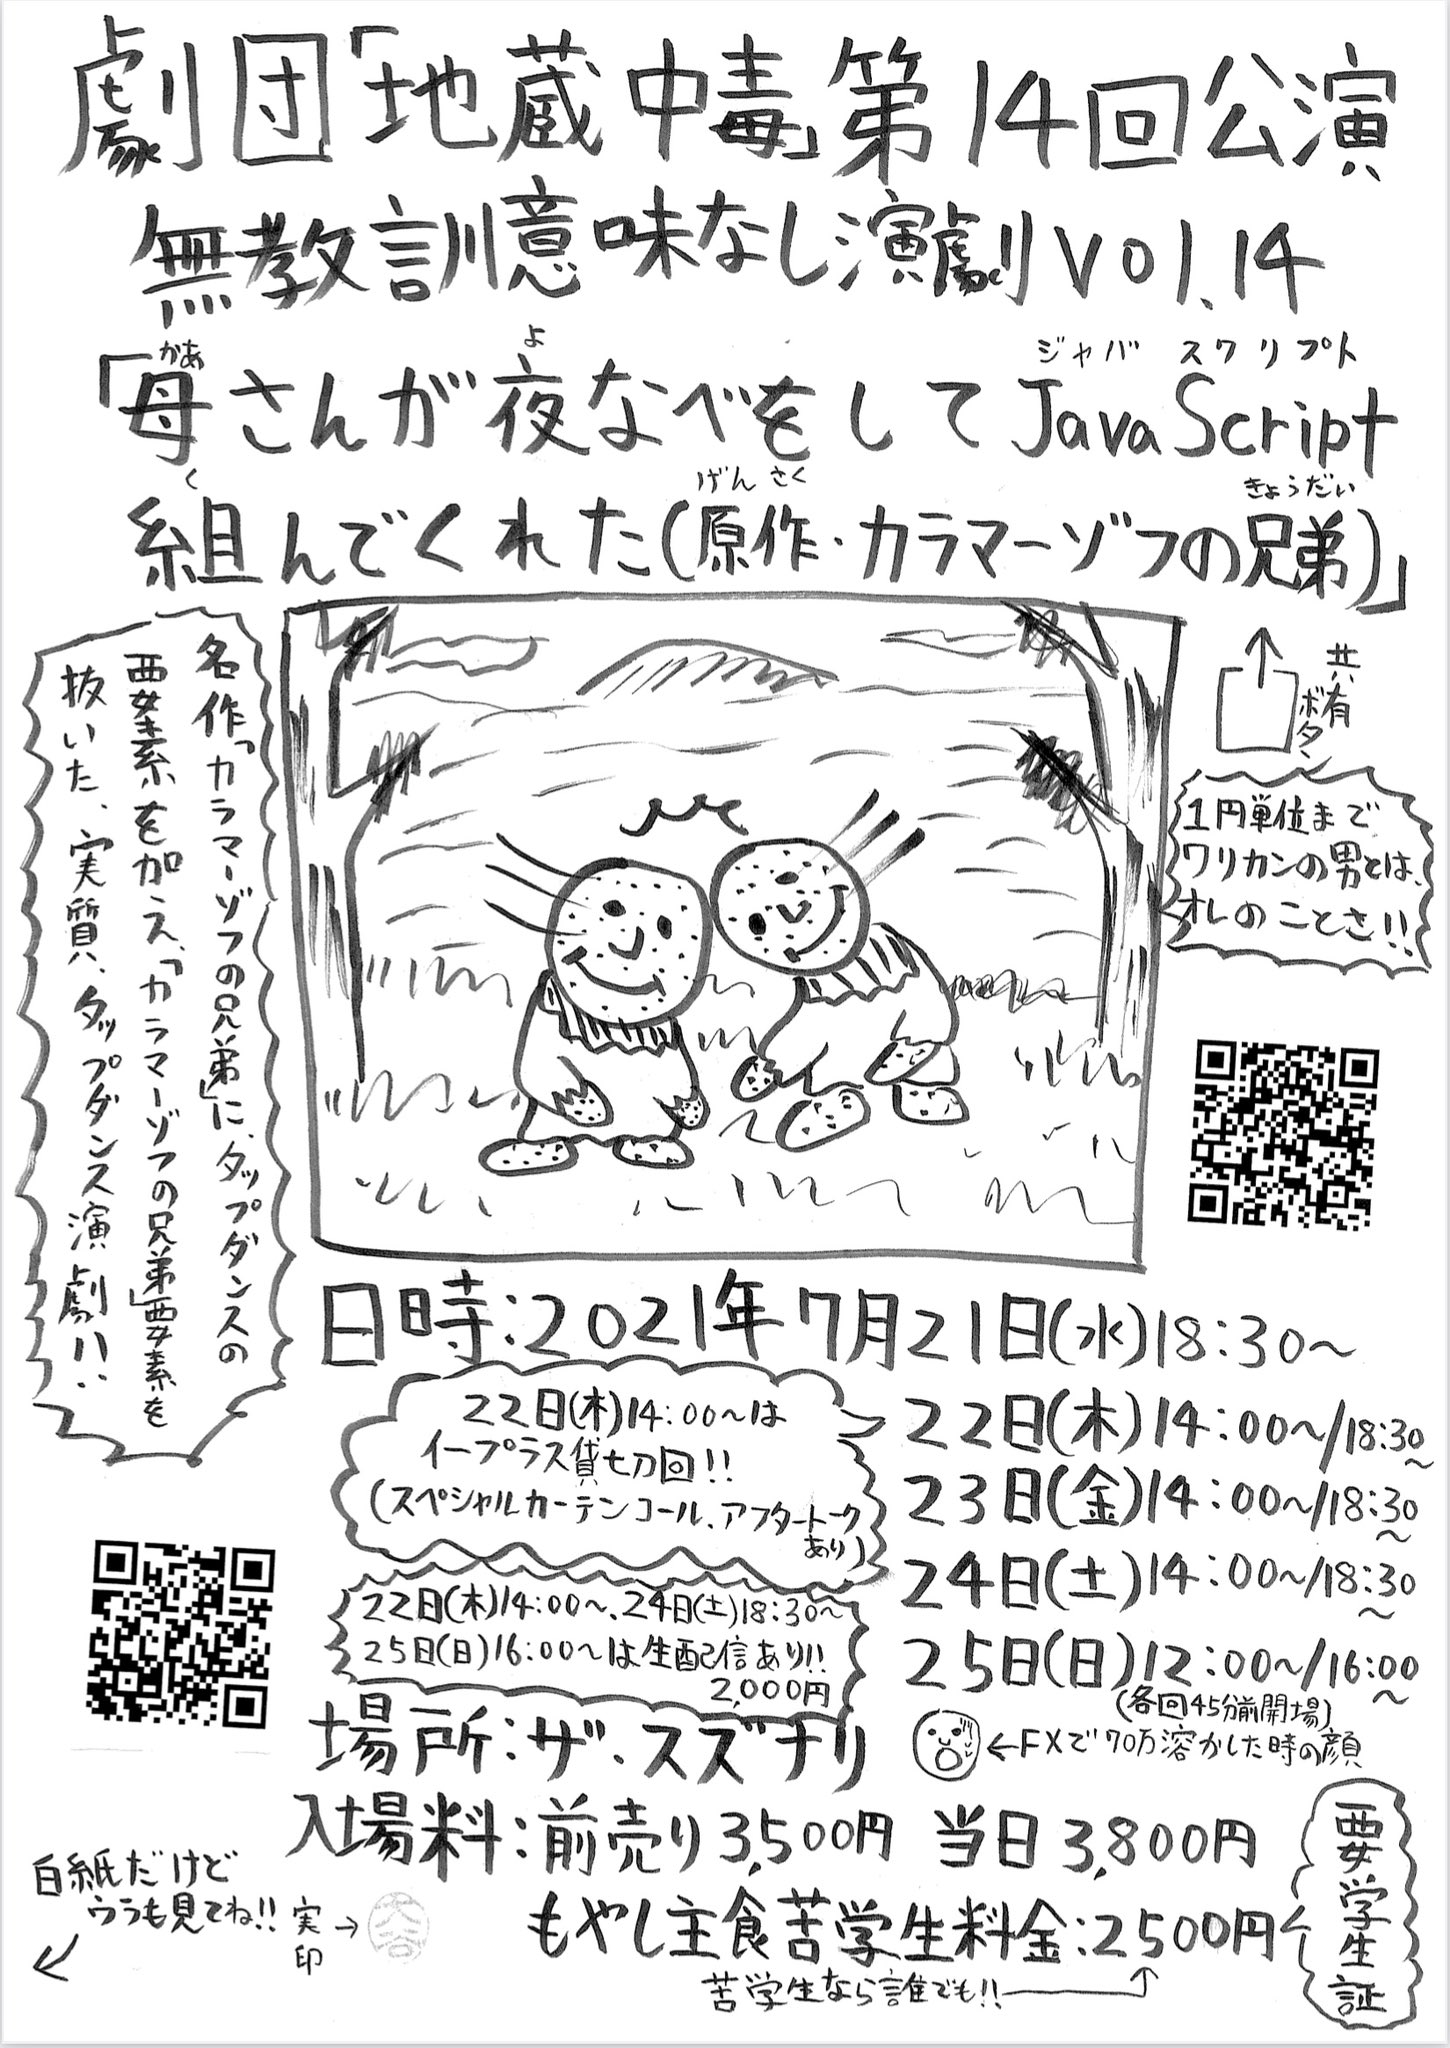 劇団「地蔵中毒」第14回公演
無教訓意味なし演劇vol.14
かあ
よ
ジャバ スクリプト
「母さんが夜なべをしてJavaScript
く
げんさく
きょうだい
組んでくれた(原作・カラマーゾフの兄弟)」
名作「カラマーゾフの兄弟」に、タップダンスの
要素を加え、「カラマーゾフの兄弟」要素を
抜いた、実質、タップダンス演劇!!
共有
ボタン
1円単位まで
ワリカンの男とは、
オレのことさ!!
日時:2021年7月21日(水)18:30〜
22日(木)14:00〜/18:30〜
23日(金)14:00〜/18:30〜
24日(土)14:00〜/18:30〜
25日(日)12:00〜/16:00〜
(各回45分前開場)
22日(木)14:00〜は
イープラス貸切回!!
(スペシャルカーテンコール、アフタートーク
あり)
22日(木)14:00〜、24日(土)18:30〜
25日(日)16:00〜は生配信あり!!
2,000円
場所:ザ・スズナリ
←FXで70万溶かした時の顔
入場料:前売り3,500円 当日3,800円
もやし主食苦学生料金:2500円
苦学生なら誰でも!!
要学生証
白紙だけど
ウラも見てね!!
実印→
大谷